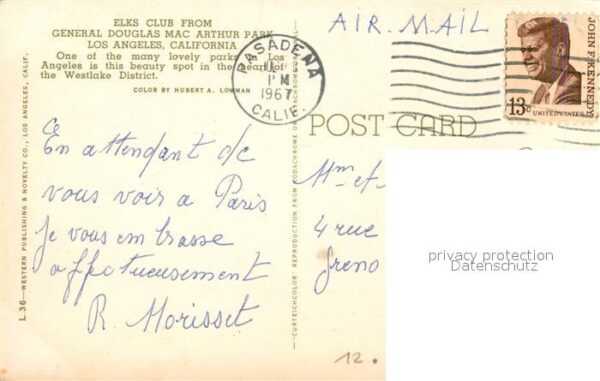 ELKS CLUB FROM
GENERAL DOUGLAS MAC ARTHUR PARK
LOS ANGELES, CALIFORNIA
One of the many lovely parks in Los
Angeles is this beauty spot in the heart of
the Westlake District.
COLOR BY HUBERT A. LOWMAN
AIR MAIL
PASADENA
PM
1967
CALIF.
JOHN F. KENNEDY
13c
UNITED STATES
POST CARD
En attendant de
vous voir à Paris
Je vous embrasse
affectueusement
R. Morisset
Mm et
4 rue
Greno
12.
L.36—WESTERN PUBLISHING & NOVELTY CO., LOS ANGELES, CALIF.
privacy protection
Datenschutz